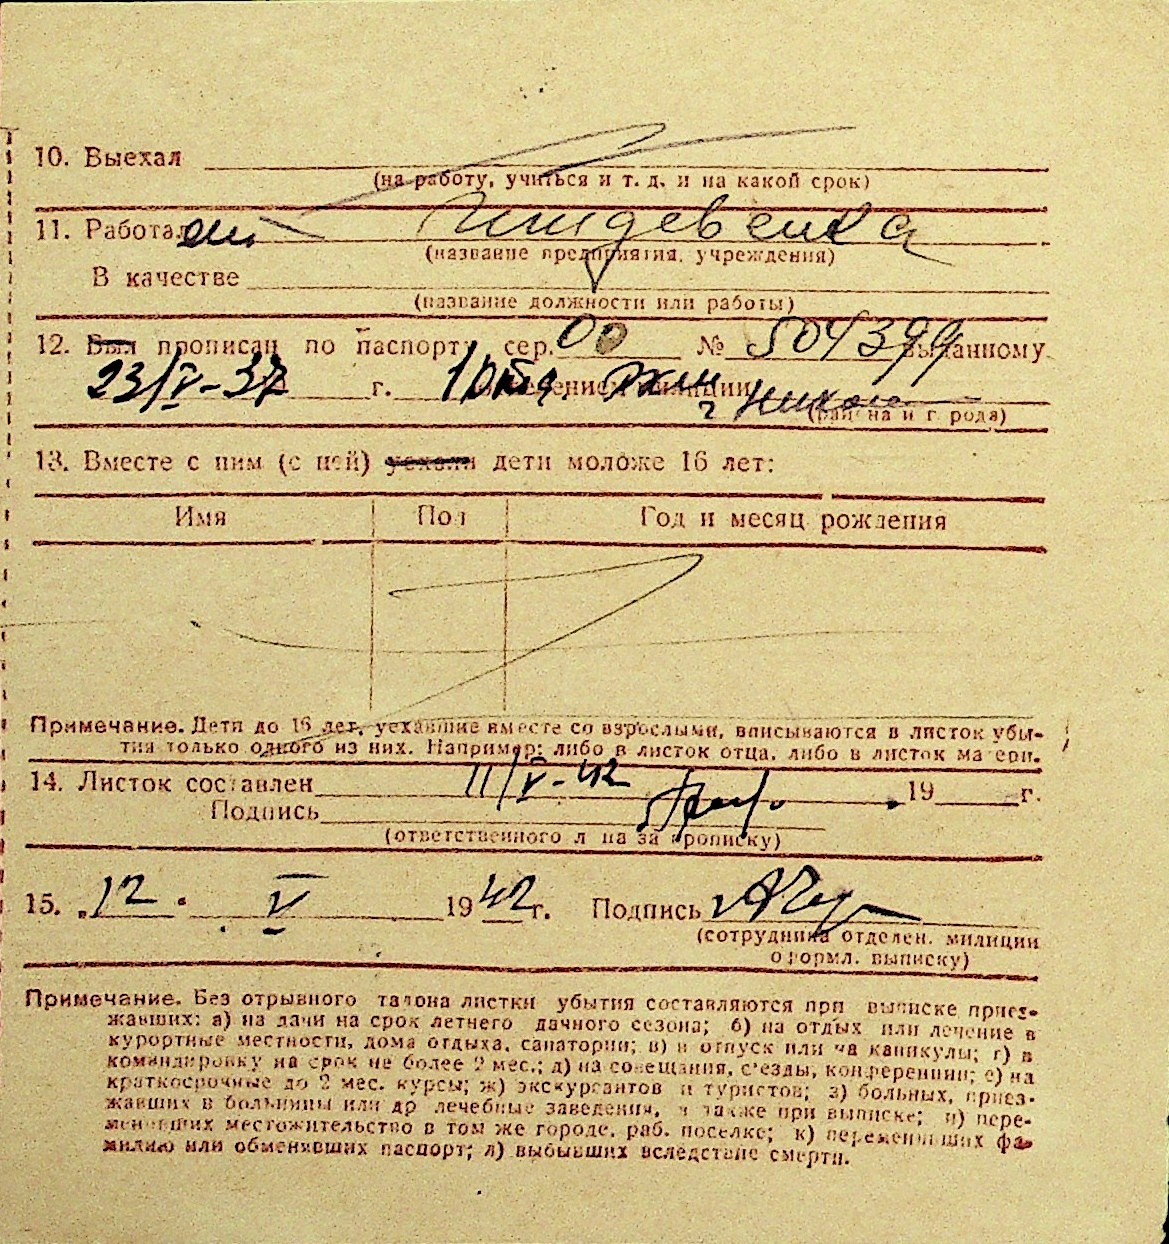 10. Выехал
(на работу, учиться и т. д. и на какой срок)
11. Работал Иждевенка
(название предприятия, учреждения)
В качестве
(название должности или работы)
12. Был прописан по паспорту сер. 00 № 504399 выданному
23/V-37 г. 1 отд. отделением милиции
(района и города)
13. Вместе с ним (с ней) уехали дети моложе 16 лет:
Имя Пол Год и месяц рождения
Примечание. Дети до 16 лет, уехавшие вместе со взрослыми, вписываются в листок убы-
тия только одного из них. Например: либо в листок отца, либо в листок матери.
14. Листок составлен 11/V-42 19 г.
Подпись
(ответственного лица за прописку)
15. „12. V 1942 г. Подпись
(сотрудника отделен. милиции
оформл. выписку)
Примечание. Без отрывного талона листки убытия составляются при выписке приез-
жавших: а) на дачи на срок летнего дачного сезона; б) на отдых или лечение в
курортные местности, дома отдыха, санатории; в) в отпуск или на каникулы; г) в
командировку на срок не более 2 мес.; д) на совещания, с'езды, конференции; е) на
краткосрочные до 2 мес. курсы; ж) экскурсантов и туристов; з) больных, приез-
жавших в больницы или др лечебные заведения, а также при выписке; и) пере-
менивших местожительство в том же городе, раб. поселке; к) переменивших фа-
милию или обменявших паспорт; л) выбывших вследствие смерти.